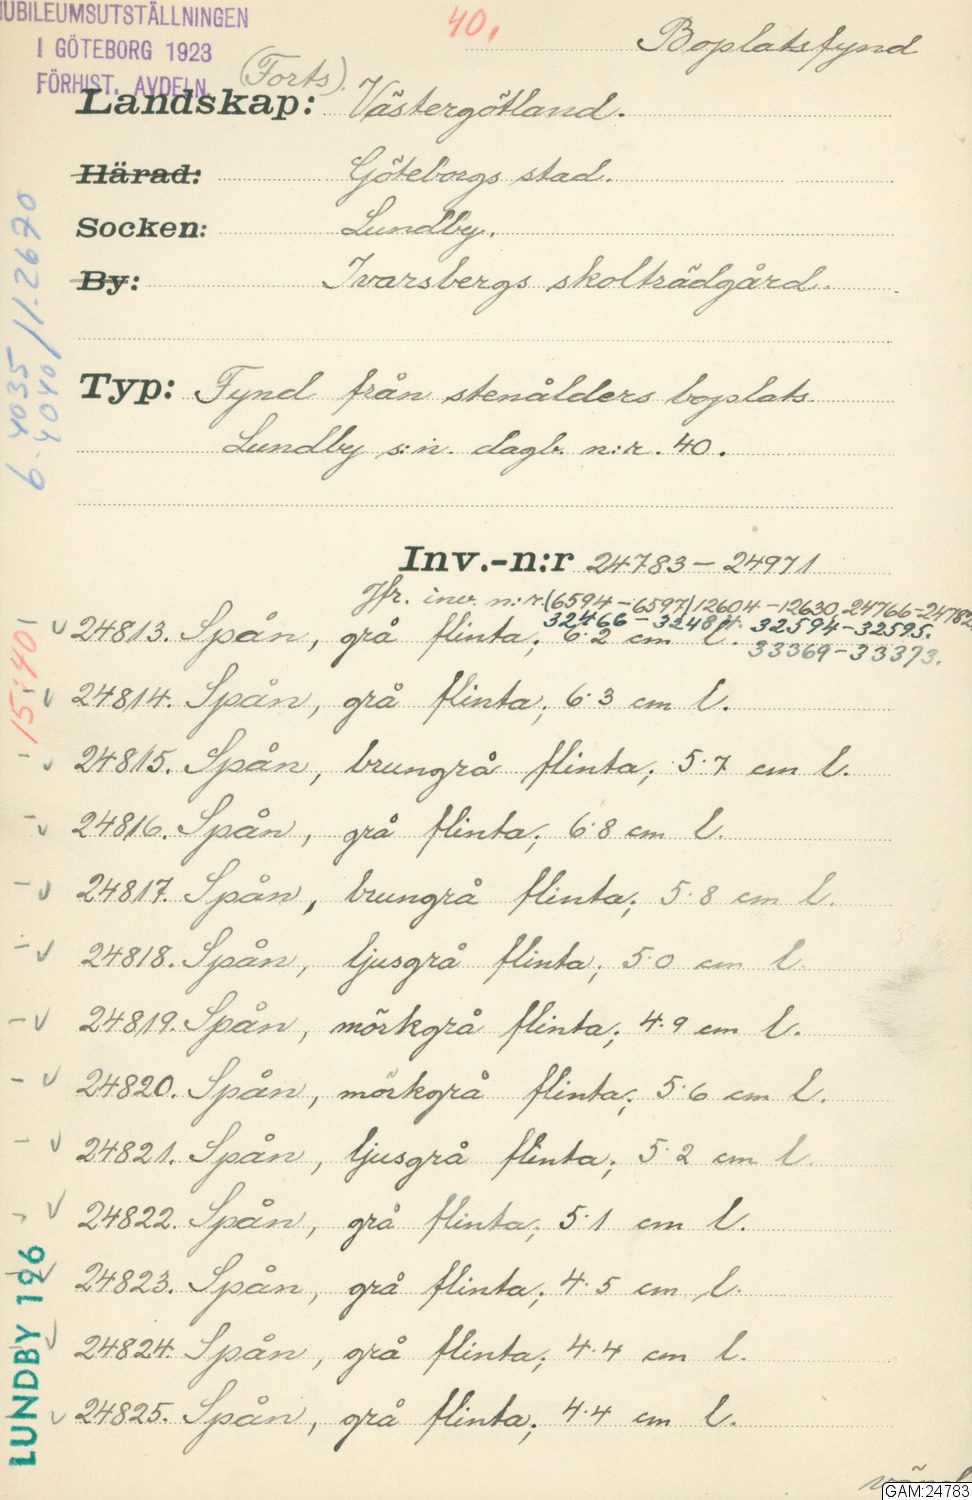 JUBILEUMSUTSTÄLLNINGEN
I GÖTEBORG 1923
FÖRHIST. AVDELN.
40.
Boplatsfynd
(Forts).
Landskap: Västergötland.
Härad: Göteborgs stad.
Socken: Lundby.
By: Ivarsbergs skolträdgård.
Typ: Fynd från stenålders boplats
Lundby s:n. dagb. n:r. 40.
6.4035/1.2670
4040
Inv.-n:r 24783-24971
Jfr. inv. n:r (6594-6597) 12604-12630, 24766-24782
32466-32484. 32594-32595.
33369-33373.
15:40
24813. Spån, grå flinta; 6.2 cm l.
24814. Spån, grå flinta; 6.3 cm l.
24815. Spån, brungrå flinta; 5.7 cm l.
24816. Spån, grå flinta; 6.8 cm l.
24817. Spån, brungrå flinta; 5.8 cm l.
24818. Spån, ljusgrå flinta; 5.0 cm l.
24819. Spån, mörkgrå flinta; 4.9 cm l.
24820. Spån, mörkgrå flinta; 5.6 cm l.
24821. Spån, ljusgrå flinta; 5.2 cm l.
24822. Spån, grå flinta; 5.1 cm l.
24823. Spån, grå flinta; 4.5 cm l.
24824. Spån, grå flinta; 4.4 cm l.
24825. Spån, grå flinta; 4.4 cm l.
LUNDBY 196
GAM:24783